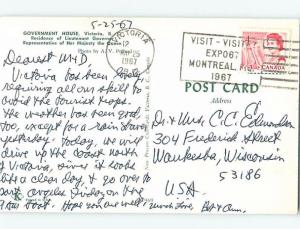 5-25-67
GOVERNMENT HOUSE, Victoria, B.
Residence of Lieutenant Govern
Representative of Her Majesty the
Photo by A. V.
VICTORIA
12
25
1967
VISIT - VISIT
EXPO67
MONTREAL,
1967
CANADA
POST CARD
Address
Dearest M+D,
Victoria has been lovely
requiring all our skill to
avoid the tourist traps.
The weather has been good
too, except for a rain storm
yesterday. Today, we will
drive up the coast north
of Victoria, since it looks
like a clear day, & go over to
Port Angeles Friday on the
boat. Hope you are well. Much Love,
Dr & Mrs C.C. Edmondson
304 Frederick Street
Waukesha, Wisconsin
53186
USA.